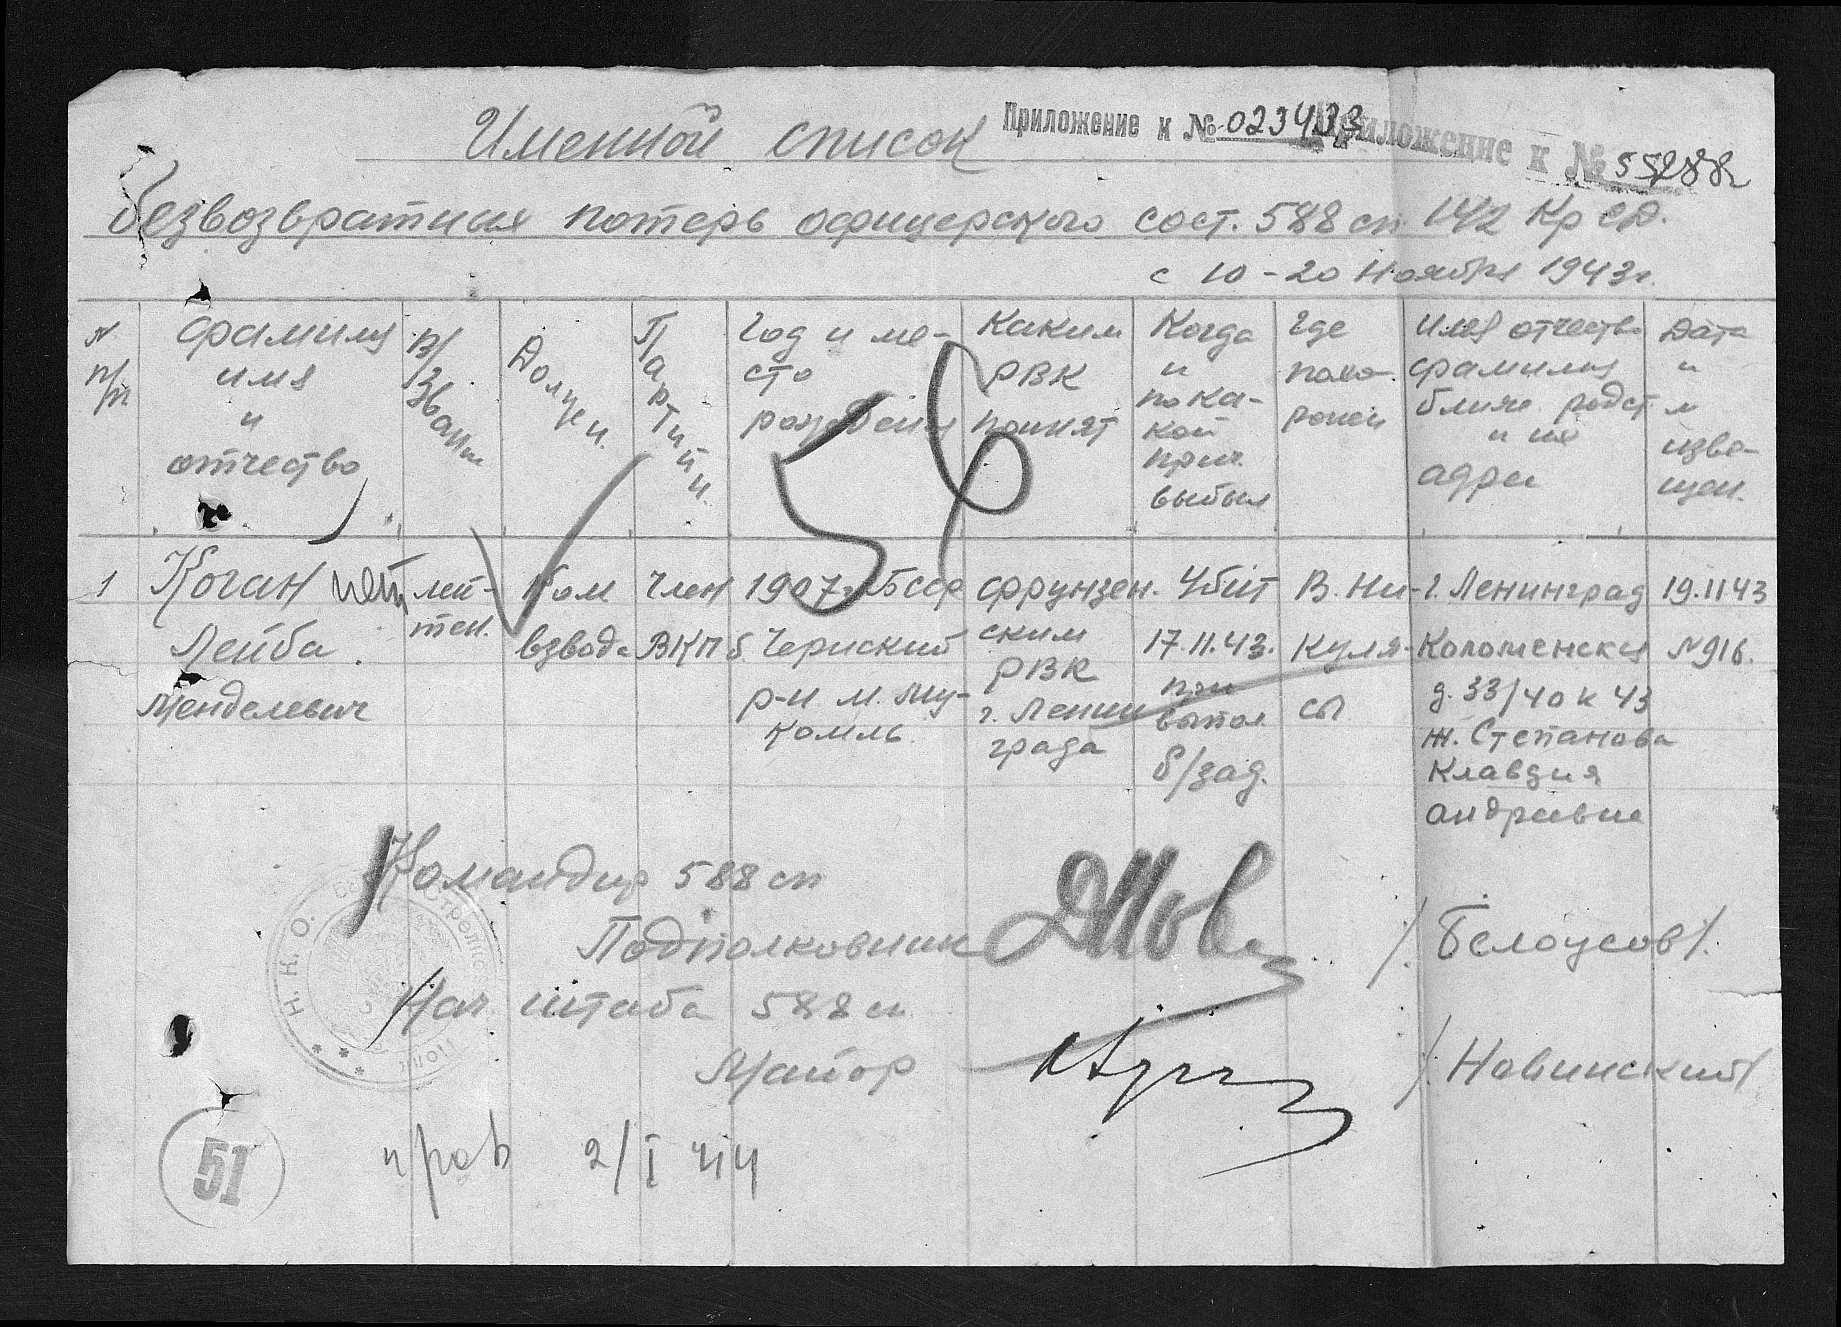 Именной список
Приложение к № 023433
Приложение к №
безвозвратных потерь офицерского сост. 588 сп 142 Кр СД.
с 10-20 ноября 1943г.
N п/п
фамилия имя и отчество
В/звание
Должн.
Партийн.
Год и место рождения
Каким РВК принят
Когда и по какой прич. выбыл
Где похоронен
Имя отчество фамилия ближ. родст. и их адрес
Дата и N извещен.
56
1 Коган лей- Ком Член 1907г. БССР Фрунзен. Убит В. Ни- г. Ленинград 19.11.43
Лейба тен. взвода ВКПб Черийский ским 17.11.43. куля- Коломенская N916.
Менделевич р-н м. Лу- РВК при сы д. 33/40 к 43
комль г. Ленин вытол ж. Степанова
града б/зад. Клавдия
Андреевна
Командир 588 сп
Подполковник /Белоусов/.
Нач штаба 588 сп
Майор /Новинский/
Н. К. О.
51
пров 2/I 44